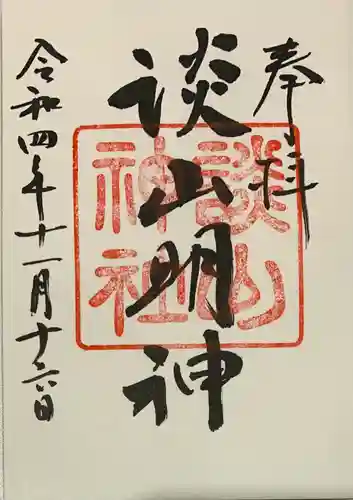 奉拝
談山明神
談山神社
令和四年十一月十六日